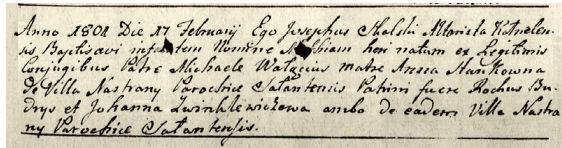 Anno 1801 Die 17 Februarij Ego Josephus Skalski Altarista Katnelen-
sis Baptisavi infantem Nomine Mathiam heri natum ex Legitimis
Conjugibus Patre Michaele Wałęcius matre Anna Stankowna
de Villa Nastrany Parochice Salantensis Patrini fuere Rochus Bu-
drys et Johanna Zwinklewiczewa ambo de eadem Villa Nastra-
ny Parochice Salantensis.